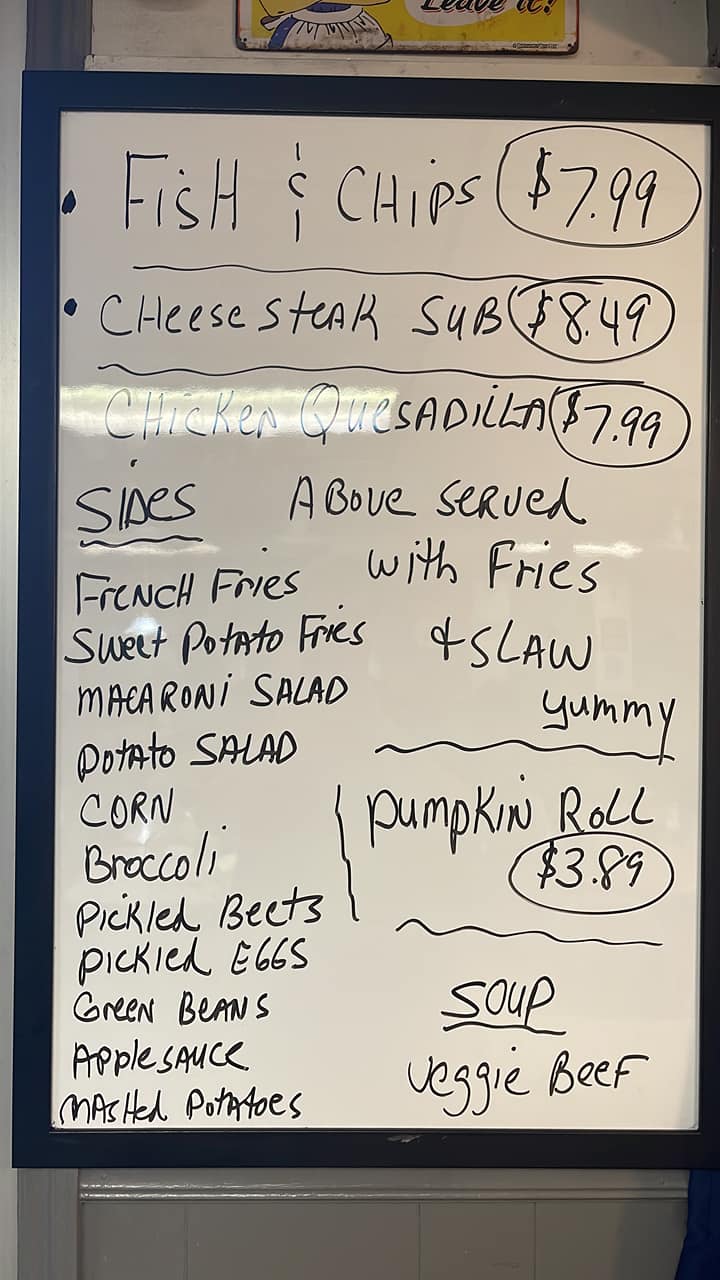 Leave it!
• FisH & CHiPS $7.99
• CHeese steAK SUB $8.49
CHicKen QuesADiLLA $7.99
SIDes
ABove served
with Fries
& SLAW
yummy
FreNCH Fries
Sweet PotAto Fries
MACARONi SALAD
Potato SALAD
CORN
Broccoli
Pickled Beets
Pickled EGGS
Green BEANS
ApplesAuce
MAsHed PotAtoes
PumpKiN RoLL
$3.89
SOUP
Veggie BeeF